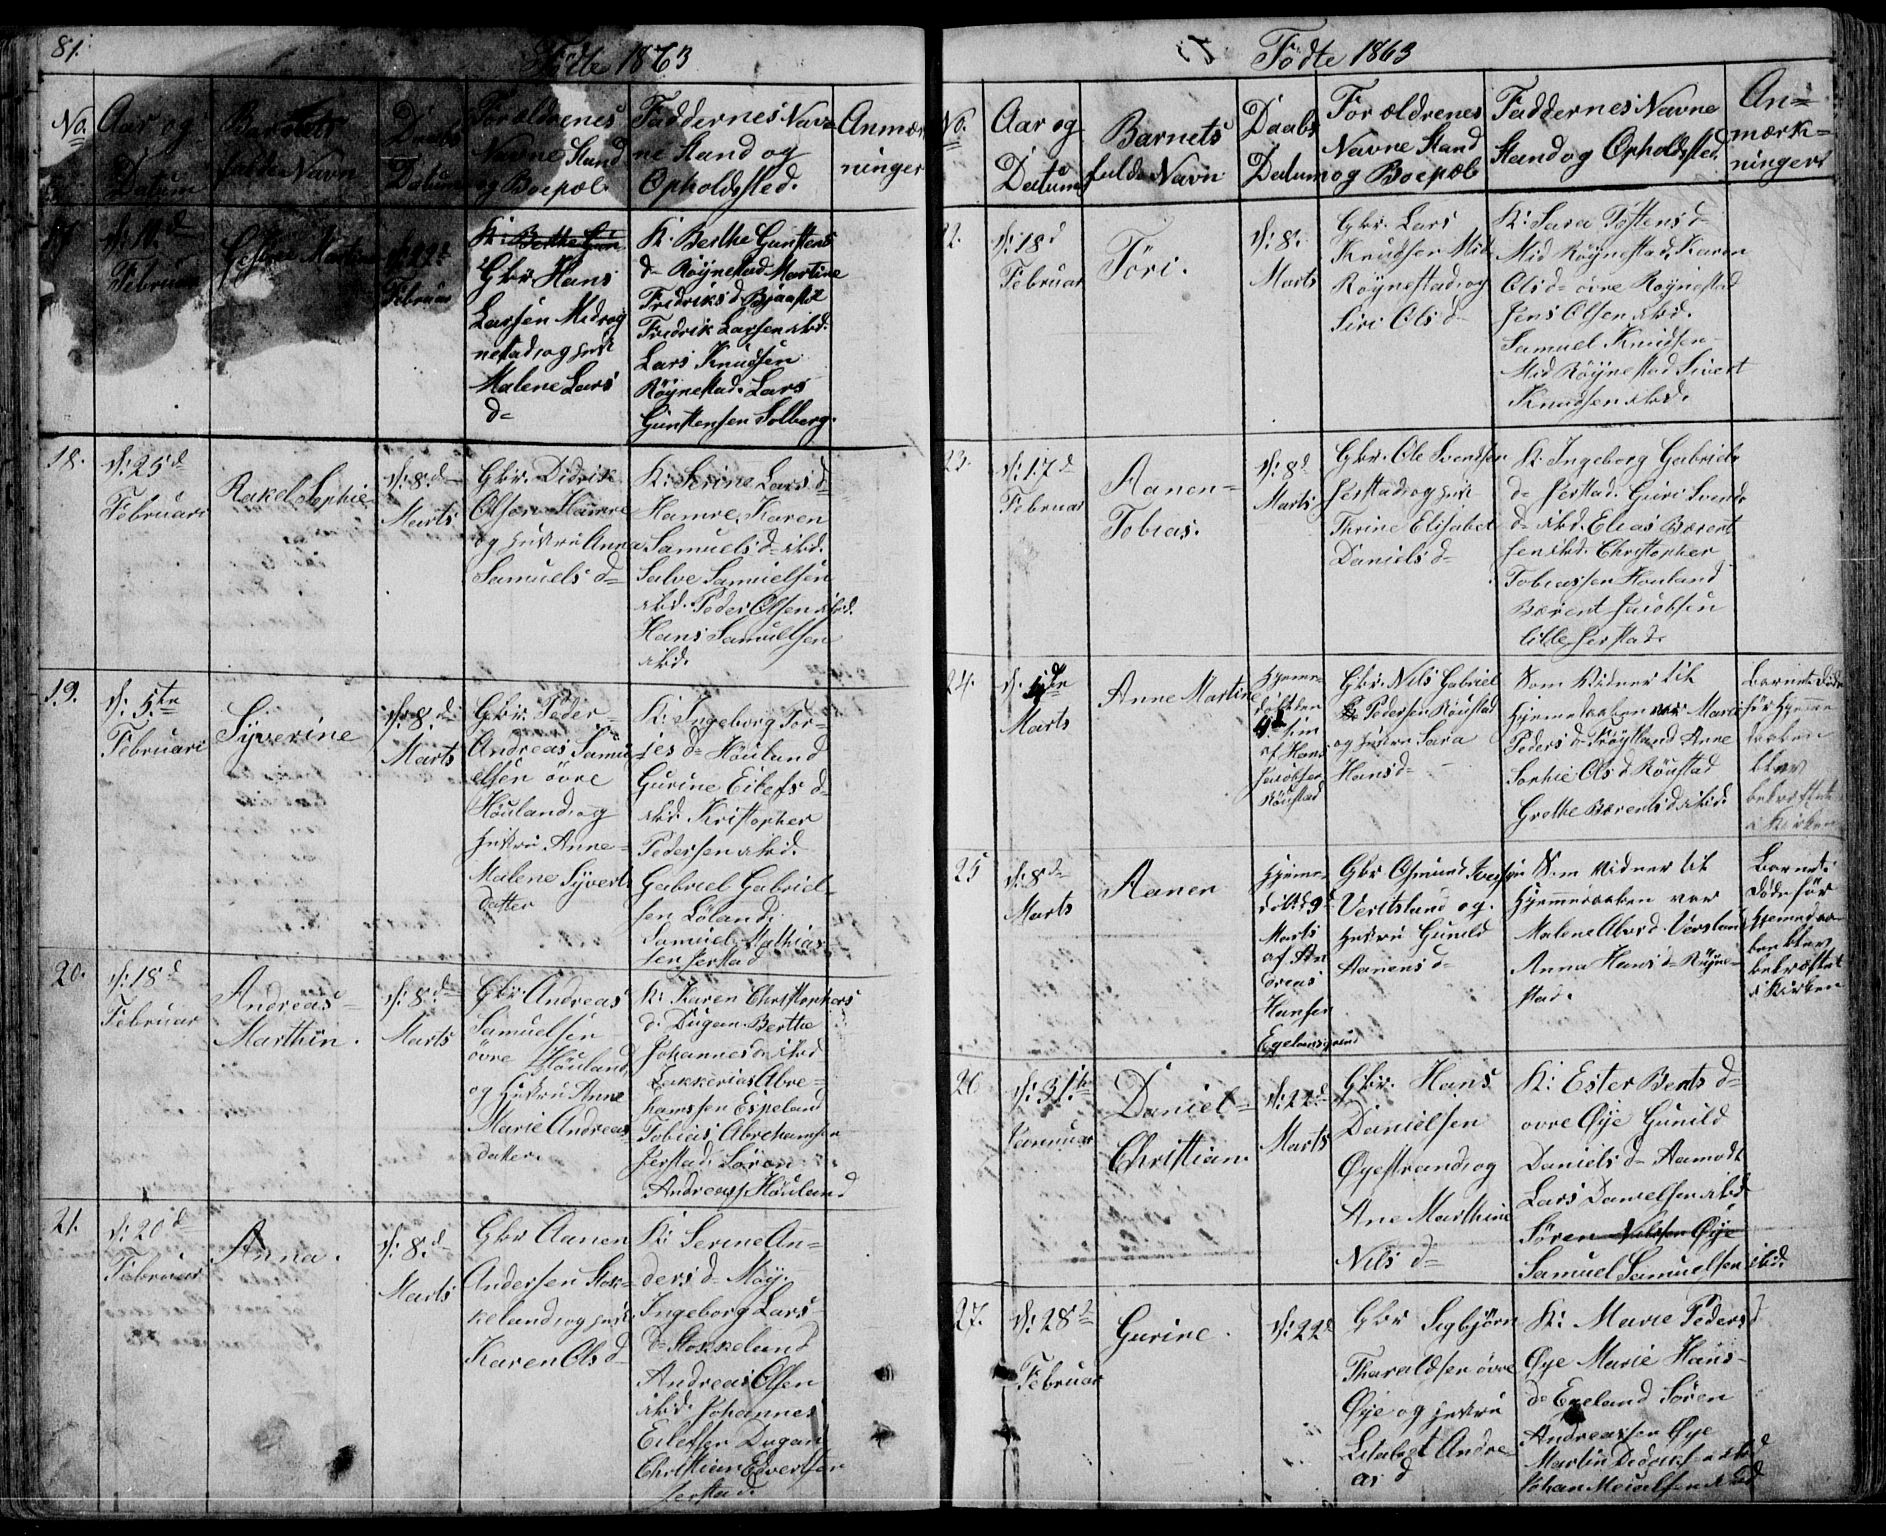 81.
Fødte 1863
No.
Aar og
Datum
Barnets
fulde Navn
Daabs
Datum
Forældrenes
Navne Stand
og Boepæl
Faddernes Nav=
ne Stand og
Opholdssted.
Anmær
ninger
17
d: 11d
Februar
Februar
K: Berthe Gun
Gbr Hans
Larsen Midrøy
nestad, og hust
Malene Lars
d=
K: Berthe Gunstens
d= Røynestad Martine
Fredriks d=
Fredrik Larsen ibd.
Lars Knudsen
Røynestad. Lars
Gunstensen Solberg.
18.
d: 25d
Februari
Rakel Sophie
d: 8.d
Marts
Gbr. Didrik
Olsen Hamre
og hustru Anna
Samuels d=
K: Serine Lars d=
Hamre, Karen
Samuels d= ibd.
Salve Samuelsen
ibd. Peder Olsen ibd.
Hans Samuelsen
ibd.
19.
d: 5te
Februari
Syverine
d: 8.d
Marts
Gbr. Peder
Andreas Samu
elsen øvre
Høuland, og
hustru Anne
Malene Syverts
datter
K: Ingeborg Tor=
jes d= Høuland
Gurine Eilefs d=
ibd. Kristopher
Pedersen ibd.
Gabriel Gabriel=
sen Løland,
Samuel Mathias
sen Jerstad
20.
d: 18d
Februar
Andreas=
Marthin.
d: 8.d
Marts
Gbr. Andreas
Samuelsen
øvre Høuland,
og Hustru Anne
Marie Andreas
datter.
K: Karen Christophers
d. Dugan. Berthe
Johannes d= ibd
Zakkerias Abra=
hamssen Espeland
Tobias Abrehamsen
Jerstad, Søren
Andreass. Høuland
21.
d: 20d
Februar
Anna.
d: 8.d
Marts
Gbr Aanen
Andersen Stok=
keland, og hust
Karen Ols d=
K: Serine An=
ders d= Møy.
Ingeborg Lars=
d= Stokkeland
Andreas Olsen
ibd. Johannes
Eilefsen Dugan,
Christian Eivertsen
Jerstad.
Fødte 1863
No.
Aar og
Datum
Barnets
fulde Navn
Daabs
Datum
Forældrenes
Navne Stand
og Boepæl
Faddernes Navne
Stand og Opholdssted.
An=
mærk=
ninger
22.
d: 18d
Februar
Tóri.
d: 8.
Marts
Gbr. Lars
Knudsen Mid
Røynestad, og
Siri Ols d=
K: Sara Tostens d=
Mid Røynestad, Karen
Ols d= øvre Røynestad
Jens Olsen ibd.
Samuel Knudsen
Mid Røynestad Sivert
Knudsen ibd.
23.
d: 17d
Februar
Aanen=
Tobias.
d: 8d
Marts
Gbr. Ole Svendsen
Jerstad, og hust
Thrine Elisabet
Daniels d=
K: Ingeborg Gabriels
d= Jerstad. Guri Svends
d= ibd. Elias Bærent
sen ibd. Christopher
Tobiassen Houland
Bærent Jacobsen
lille Jerstad.
24.
Marts
Anne Martine
Hjeme=
døbt den
af Hans
Jacobsen
Røustad
Gbr. Nils Gabriel
Pedersen Røustad
og hustru Sara
Hans d=
Som Vidner til
Hjemedaaben var Marie
Peders d= Frøytland Anne
Sophie Ols d Røustad
Grethe Bærents d. ibid.
Barnet døde
før Hjeme
daaben
blev
bekræftet
i Kirken
25
d: 8d
Marts
Aanen
Hjeme=
døbt d 9d
Marts
af An
dreas
Hansen
Egelandsgrind
Gbr Osmund
Veritsland og
hustru Gunild
Aanens d=
Som Vidner til
Hjemedaaben var
Malene Abrd. Versland
Anna Hans d= Røyne=
stad.
Barnet
døde før
Hjemedaa=
ben blev
bekræftet
i Kirken
26
d: 31te
Januar
Daniel=
Christian
d: 22d
Marts
Gbr. Hans
Danielsen
Øyestrand, og
Ane Marthine
Nils d=
K: Ester Bents d=
øvre Øye Gunild
Daniels d= Aamodt
Lars Danielsen ibd
Søren Nilssen Øye
Samuel Samuelsen ibd.
27.
d: 28d
Februar
Gurine.
d: 22d
Gbr Sigbjørn
Tharaldsen øvre
Øye og hustru
Lisabet Andre
as d
K: Marie Peders d
Øye Marie Hans=
d= Egeland Søren
Andreassen Øye